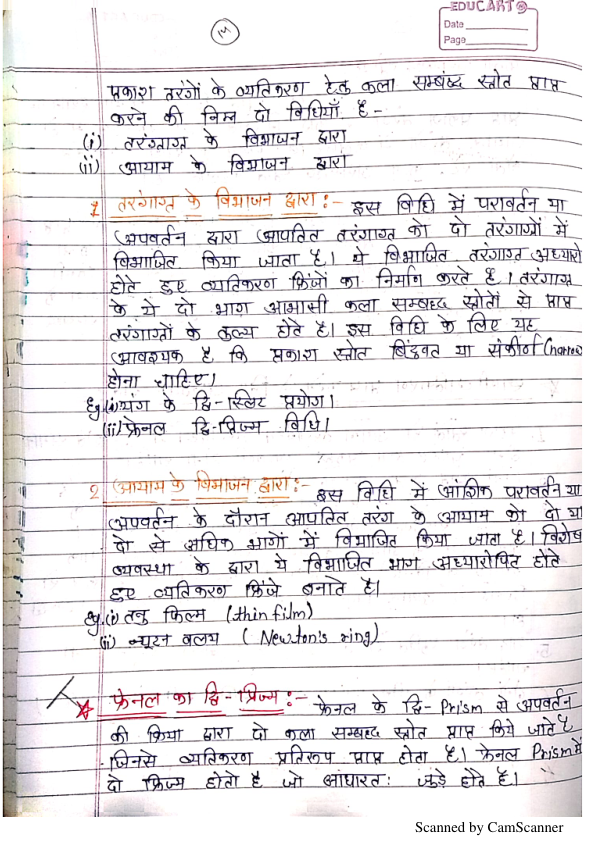 EDUCART
Date
Page
प्रकाश तरंगों के व्यतिकरण हेतु कला सम्बंद्ध स्त्रोत प्राप्त
करने की निम्न दो विधियाँ है -
(i) तरंगाग्र के विभाजन द्वारा
(ii) आयाम के विभाजन द्वारा
1 तरंगाग्र के विभाजन द्वारा :- इस विधि में परावर्तन या
अपवर्तन द्वारा आपतित तरंगाग्र को दो तरंगाग्रों में
विभाजित किया जाता है। ये विभाजित तरंगाग्र अध्यारो
होते हुए व्यतिकरण फ्रिंजों का निर्माण करते है। तरंगाग्र
के ये दो भाग आभासी कला सम्बद्ध स्त्रोतों से प्राप्त
तरंगाग्रों के तुल्य होते है। इस विधि के लिए यह
आवश्यक है कि प्रकाश स्त्रोत बिंदुवत या संकीर्ण (narrow
होना चाहिए।
Eg.(i) यंग के द्वि-स्लिट प्रयोग।
(ii) फ्रेनल द्वि-प्रिज्म विधि।
2 आयाम के विभाजन द्वारा :- इस विधि में आंशिक परावर्तन या
अपवर्तन के दौरान आपतित तरंग के आयाम को दो या
दो से अधिक भागों में विभाजित किया जाता है। विशेष
व्यवस्था के द्वारा ये विभाजित भाग अध्यारोपित होते
हुए व्यतिकरण फ्रिंजे बनाते है।
Eg.(i) तनु फिल्म (thin film)
(ii) न्यूटन वलय ( Newton's ring)
फ्रेनल का द्वि-प्रिज्म :- फ्रेनल के द्वि- Prism से अपवर्तन
की क्रिया द्वारा दो कला सम्बद्ध स्त्रोत प्राप्त किये जाते है
जिनसे व्यतिकरण प्रतिरूप प्राप्त होता है। फ्रेनल Prism में
दो प्रिज्म होते है जो आधारतः जुड़े होते है।
Scanned by CamScanner